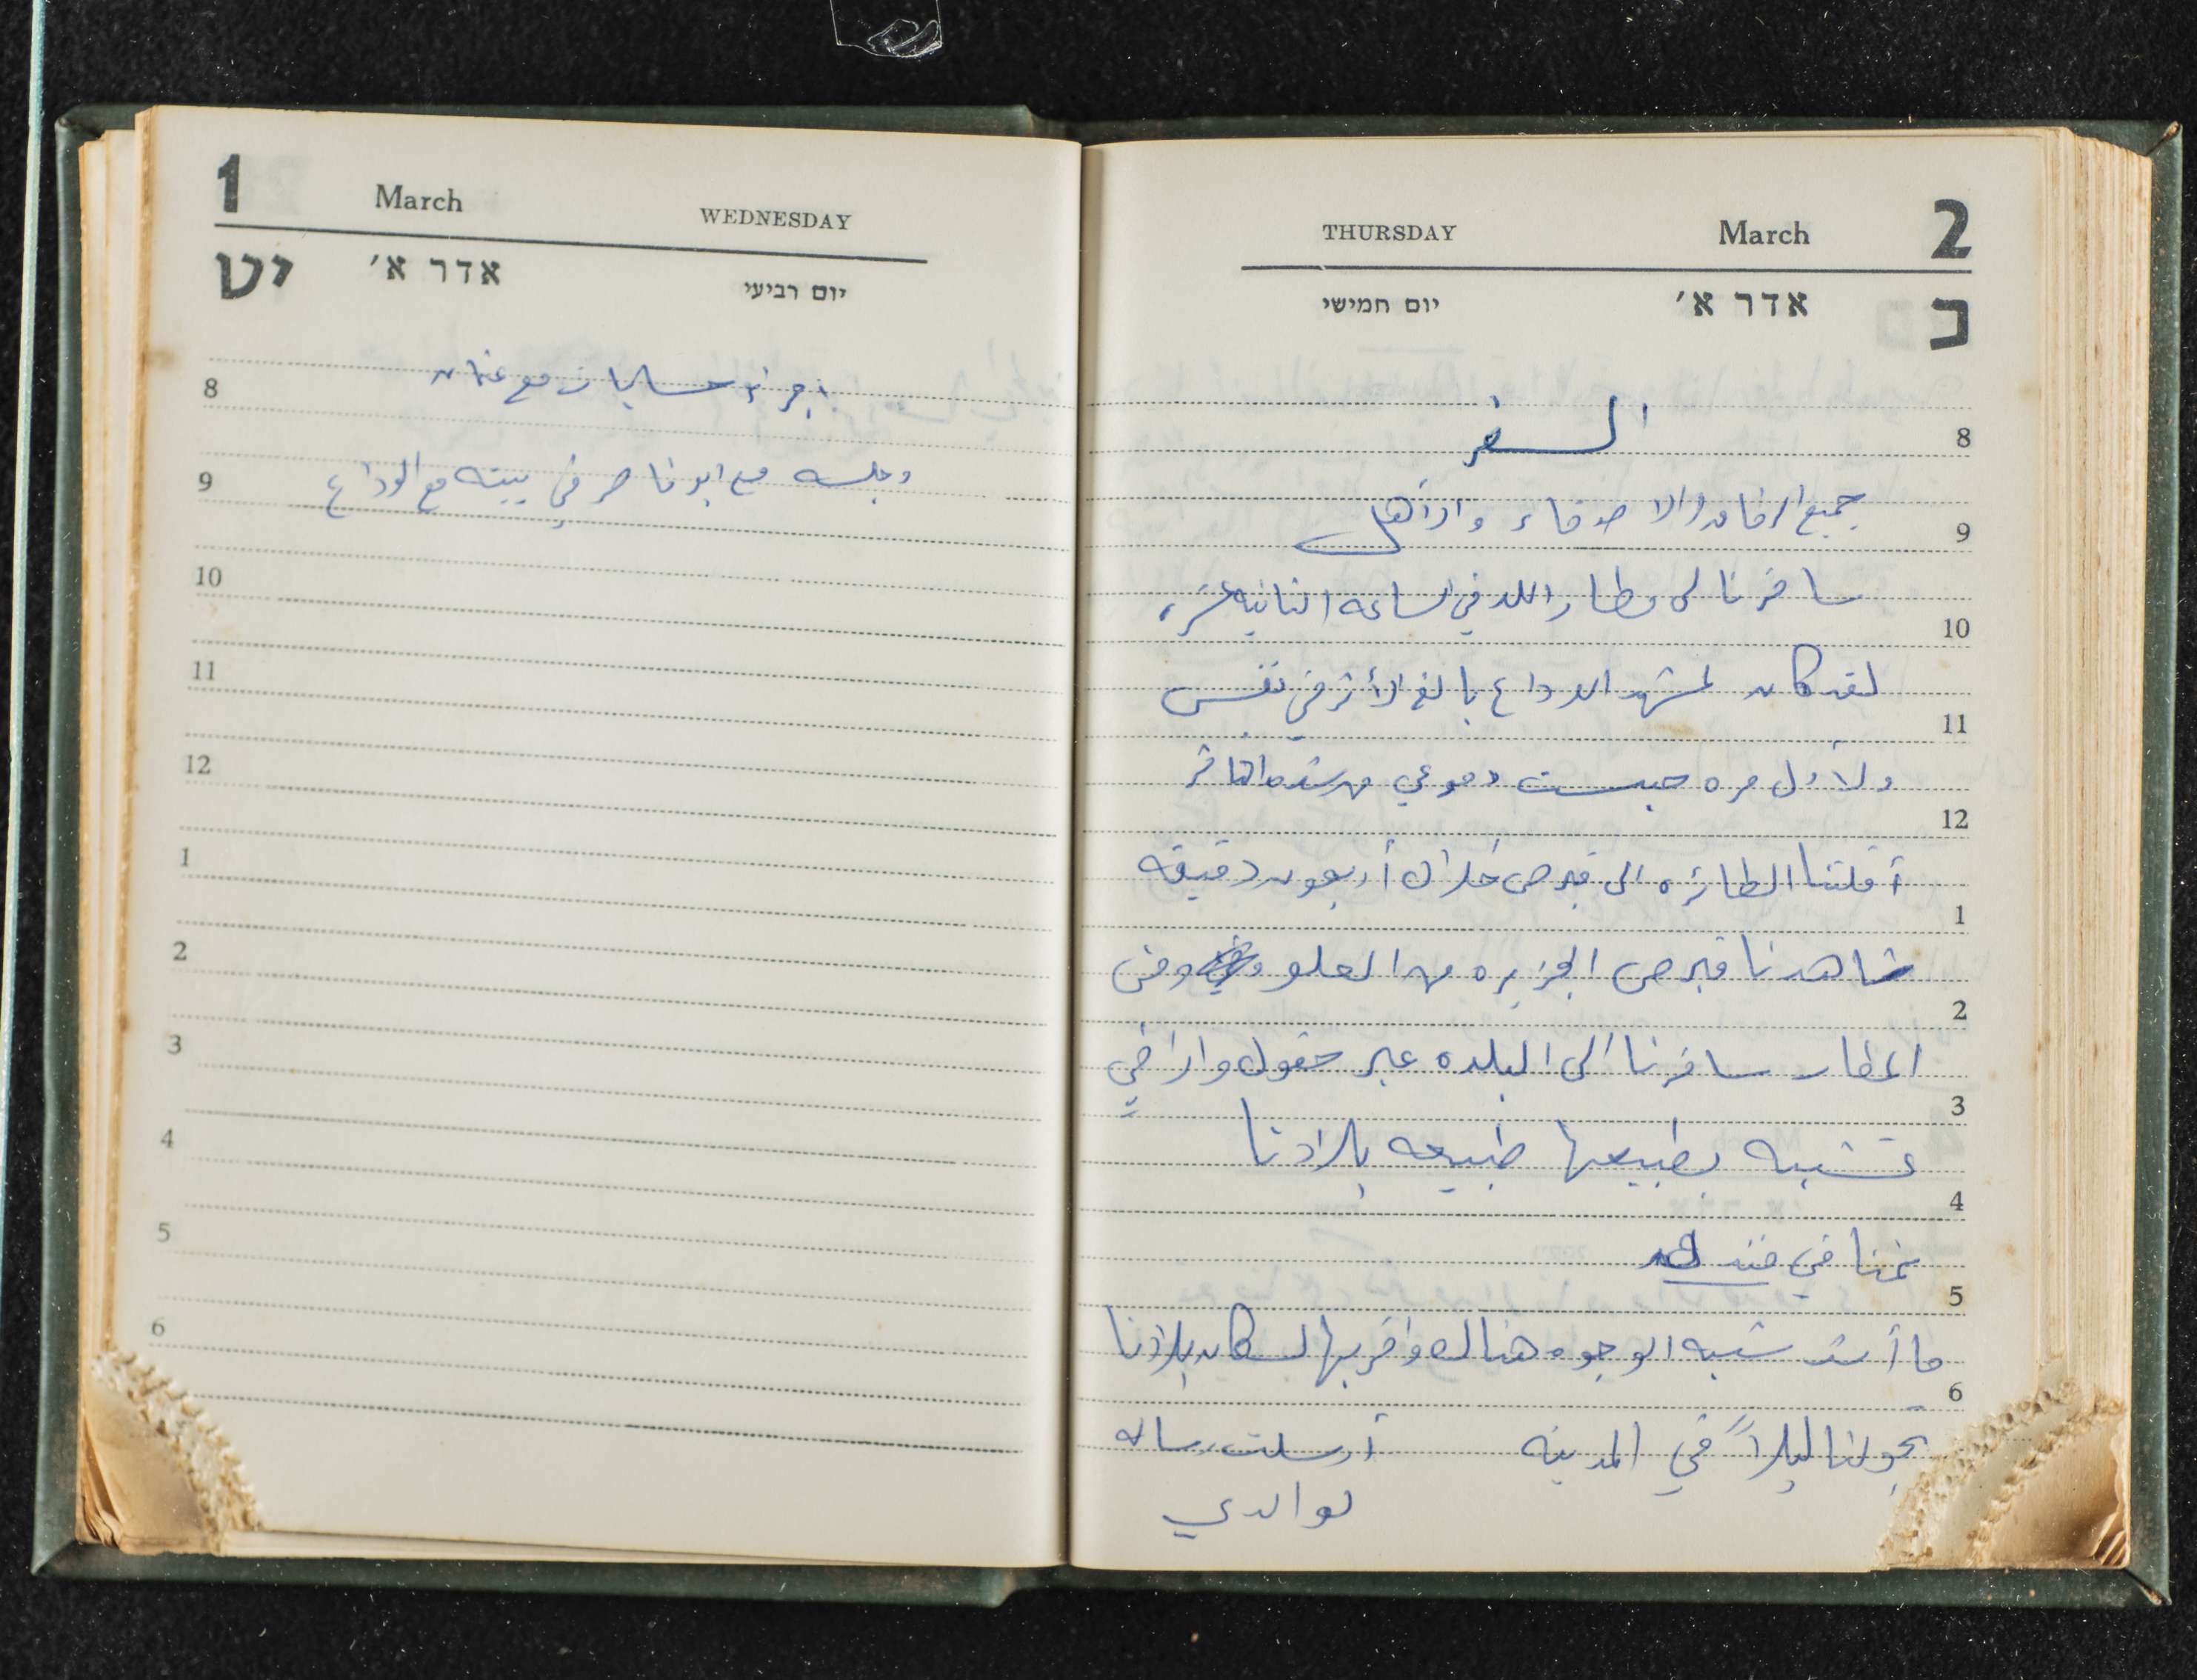 1 March WEDNESDAY
יט אדר א׳ יום רביעי
8 اجراء حسابات مع عثمان
9 وجلسه مع ابو ناصر في بيته مع الوداع
10
11
12
1
2
3
4
5
6
THURSDAY March 2
יום חמישי אדר א׳ כ
السفر
8
جميع الرفاق والاصدقاء والأهل
9
سافرنا لى مطار اللد في الساعه الثانيه عشره
10
لقد كان لمشهد الوداع بالغ الأثر في نفسي
11
ولأول مره حبست دموعي من شده التاثر
12
أقلتنا الطائره الى قبرص خلال أربعون دقيقه
1
شاهدنا قبرص الجزيره من العلو ومن
2
المطار سافرنا الى البلده عبر حقول واراضي
3
تشبه بطبيعتها طبيعه بلادنا
4
نمنا في فندق
5
ما أشد شبه الوجوه هناك واقربها لسكان بلادنا
6
تجولنا ليلاً في المدينه أرسلت رساله
لوالدي